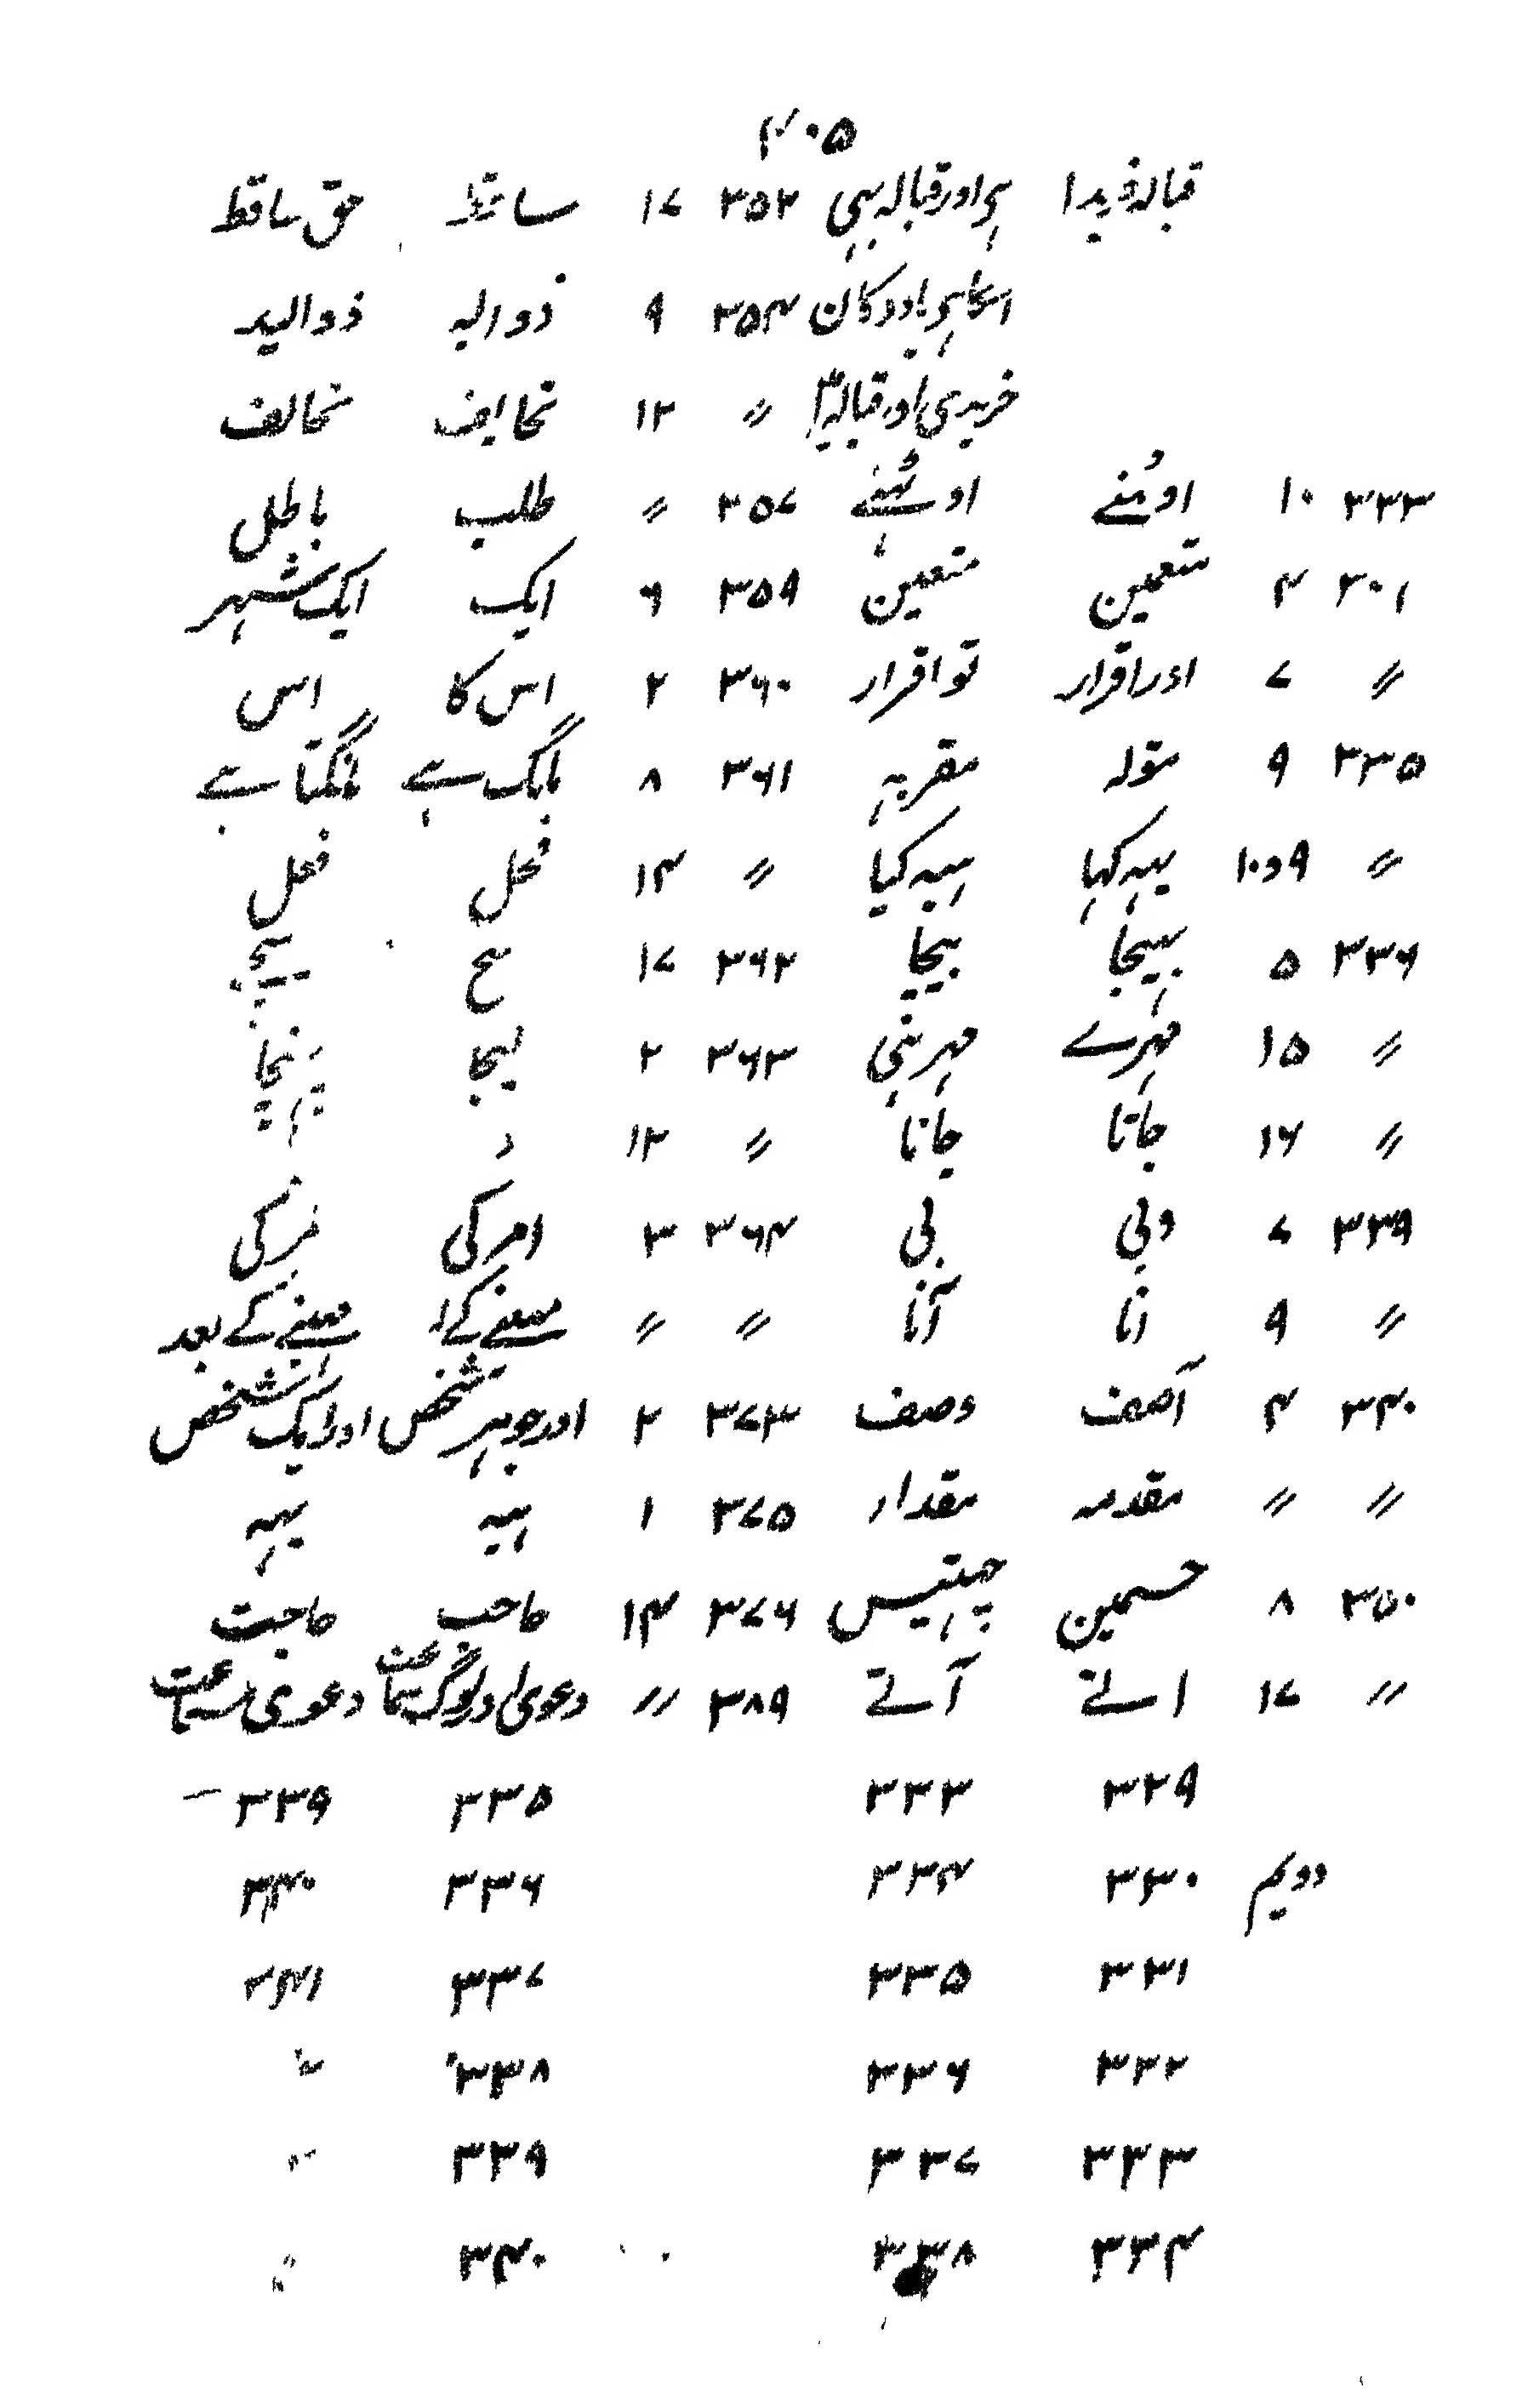 ۴۰۵
قبالہ خریدا ہی اور قبالہ بھی ۳۵۲ ۱۷ ساتط حق ساقط
اسکا ہی یا دوکان ۳۵۴ ۹ ذوالیہ ذوالید
خریدی اور قبالہ ۱۲ 〃 تحایف تحالف
۳۳۳ ۱۰ ۳۵۷ 〃 طلب باطل
۳۰۱ ۴ متعمین متعین ۳۵۹ ۶ ایک ایک شہر
〃 ۷ اور اقرار تو اقرار ۳۶۰ ۲ اس کا اس
۳۳۵ ۹ مقولہ مقربہ ۳۶۱ ۸ مانگ ہے مانگتا ہے
〃 ۹و۱۰ یہہ کہا ہبہ کیا 〃 ۱۴ فحل فعل
۳۳۶ ۵ بھیجا بیچا ۳۶۲ ۱۷
〃 ۱۵ ۳۶۳ ۲ پہنچا
〃 ۱۶ جاتا جانا 〃 ۱۲
۳۳۹ ۷ دبی بی ۳۶۴ ۳ امر کی
〃 ۹ انا آنا 〃 〃 مہینے کے بعد
۳۴۰ ۴ آصف وصف ۳۷۳ ۲ اور جوہر شخص اور ایک شخص
〃 〃 مقدمہ مقدار ۳۷۵ ۱ ہبہ یہہ
۳۵۰ ۸ چھتیس ۳۷۶ ۱۴ حاجب حاجت
〃 ۱۷ اتے آتے ۳۸۹ 〃 دعوی سماعت
۳۲۹ ۳۳۳ ۳۳۵ ۳۳۹
دویم ۳۳۰ ۳۳۴ ۳۳۶ ۳۴۰
۳۳۱ ۳۳۵ ۳۳۷ ۳۴۱
۳۳۲ ۳۳۶ ۳۳۸ 〃
۳۳۳ ۳۳۷ ۳۳۹ 〃
۳۳۴ ۳۳۸ ۳۴۰ 〃